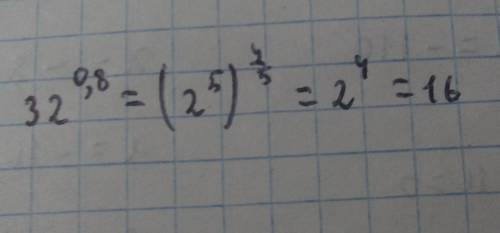 32^{0,8} = (2^5)^{\frac{4}{5}} = 2^4 = 16